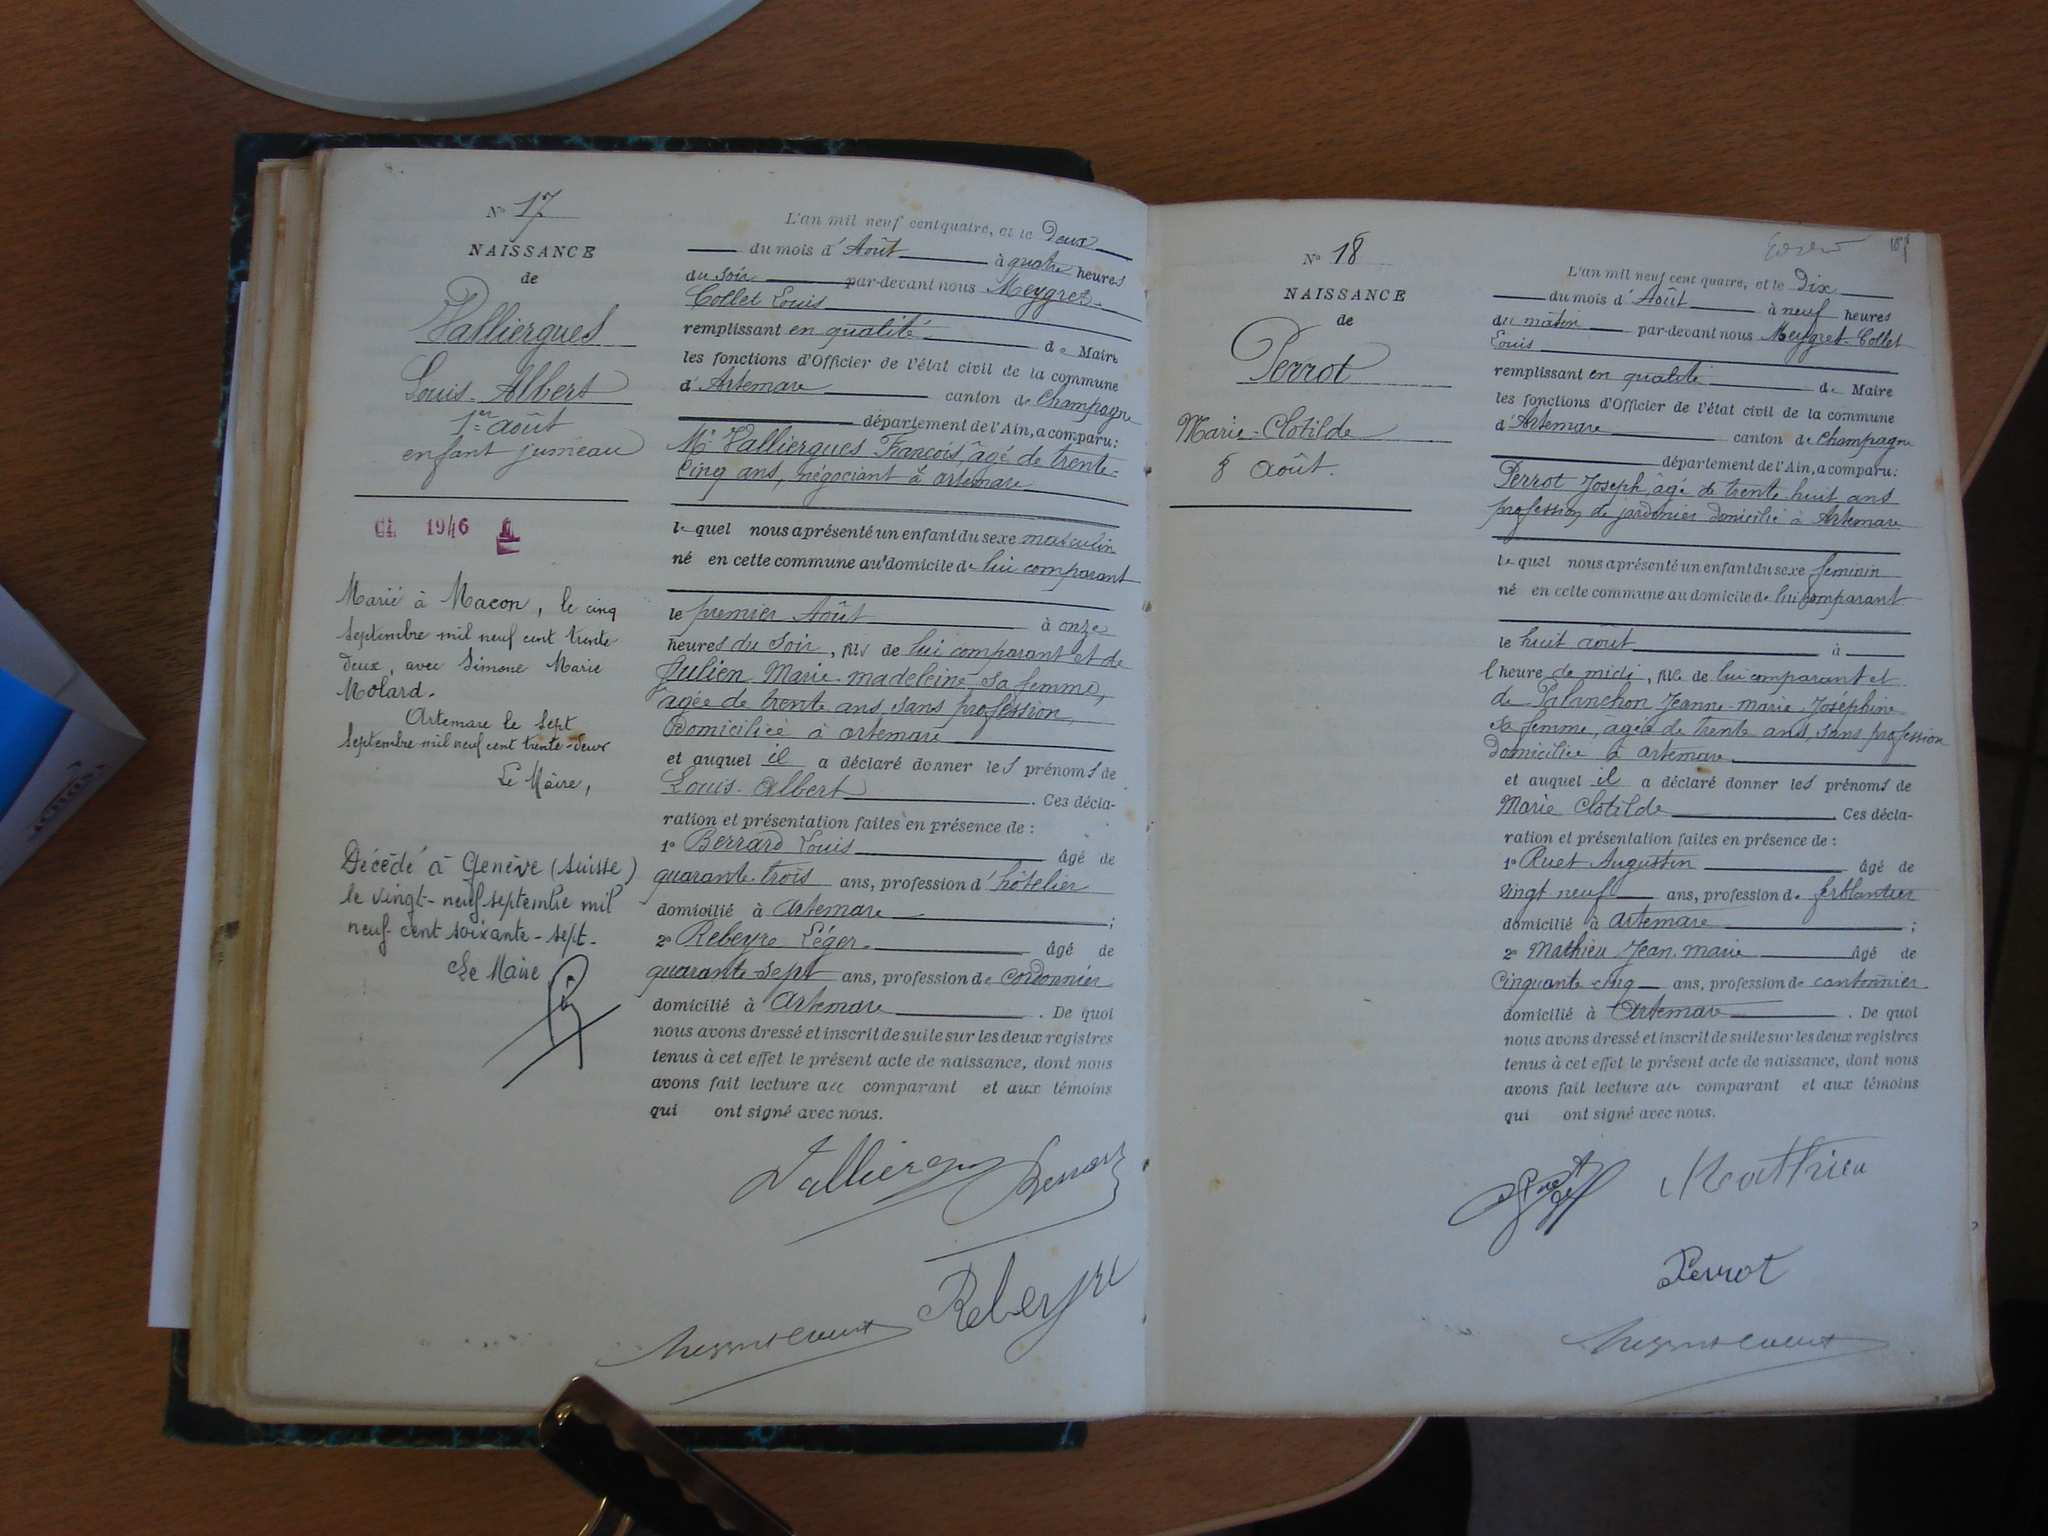 N° 17
NAISSANCE
de
Valliergues
Louis-Albert
1er août
enfant jumeau
1946
Marié à Macon, le cinq
septembre mil neuf cent trente
deux, avec Simone Marie
Molard.
Artemare le sept
septembre mil neuf cent trente-deux
Le Maire,
Décédé à Genève (Suisse)
le vingt-neuf septembre mil
neuf cent soixante-sept.
Le Maire
L'an mil neuf cent quatre, et le Deux
du mois d'Août à quatre heures
du soir par-devant nous Meygret-
Collet Louis
remplissant en qualité de Maire
les fonctions d'Officier de l'état civil de la commune
d'Artemare canton de Champagne
département de l'Ain, a comparu:
Mr Valliergues François, âgé de trente-
cinq ans, négociant à artemare
lequel nous a présenté un enfant du sexe masculin
né en cette commune au domicile de lui comparant
le premier Août à onze
heures du soir, fils de lui comparant et de
Julien Marie-madeleine, sa femme,
agée de trente ans, sans profession,
Domiciliée à artemare
et auquel il a déclaré donner les prénoms de
Louis-Albert. Ces décla-
ration et présentation faites en présence de :
1° Berrard Louis âgé de
quarante-trois ans, profession d'hôtelier
domicilié à Artemare ;
2° Rebeyre Léger âgé de
quarante-sept ans, profession de cordonnier
domicilié à Artemare. De quoi
nous avons dressé et inscrit de suite sur les deux registres
tenus à cet effet le présent acte de naissance, dont nous
avons fait lecture au comparant et aux témoins
qui ont signé avec nous.
Valliergues Berrard
Rebeyre
N° 18
NAISSANCE
de
Perrot
Marie-Clotilde
8 août.
L'an mil neuf cent quatre, et le Dix
du mois d'Août à neuf heures
du matin par-devant nous Meygret-Collet
Louis
remplissant en qualité de Maire
les fonctions d'Officier de l'état civil de la commune
d'Artemare canton de Champagne
département de l'Ain, a comparu:
Perrot Joseph, agé de trente huit ans
profession de jardinier domicilié à Artemare
lequel nous a présenté un enfant du sexe feminin
né en cette commune au domicile de lui comparant
le huit août à
l'heure de midi, fille de lui comparant et
de Palanchon Jeanne-marie-Joséphine
sa femme, agée de trente ans, sans profession
domiciliée à artemare
et auquel il a déclaré donner les prénoms de
Marie Clotilde. Ces décla-
ration et présentation faites en présence de :
1° Ruet Augustin âgé de
vingt neuf ans, profession de ferblantier
domicilié à artemare ;
2° Mathieu Jean-marie âgé de
Cinquante-cinq ans, profession de cantonnier
domicilié à Artemare. De quoi
nous avons dressé et inscrit de suite sur les deux registres
tenus à cet effet le présent acte de naissance, dont nous
avons fait lecture au comparant et aux témoins
qui ont signé avec nous.
Mathieu
Perrot